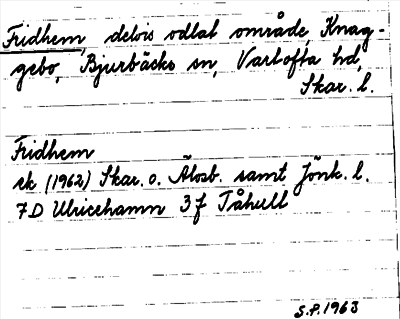 Fridhem, delvis odlat område, Knag-
gebo, Bjurbäcks sn, Vartofta hd,
Skar. l.
Fridhem
rk (1962) Skar. o. Älvsb. samt Jönk. l.
7D Ulricehamn 3f Tåhult
S.P. 1963